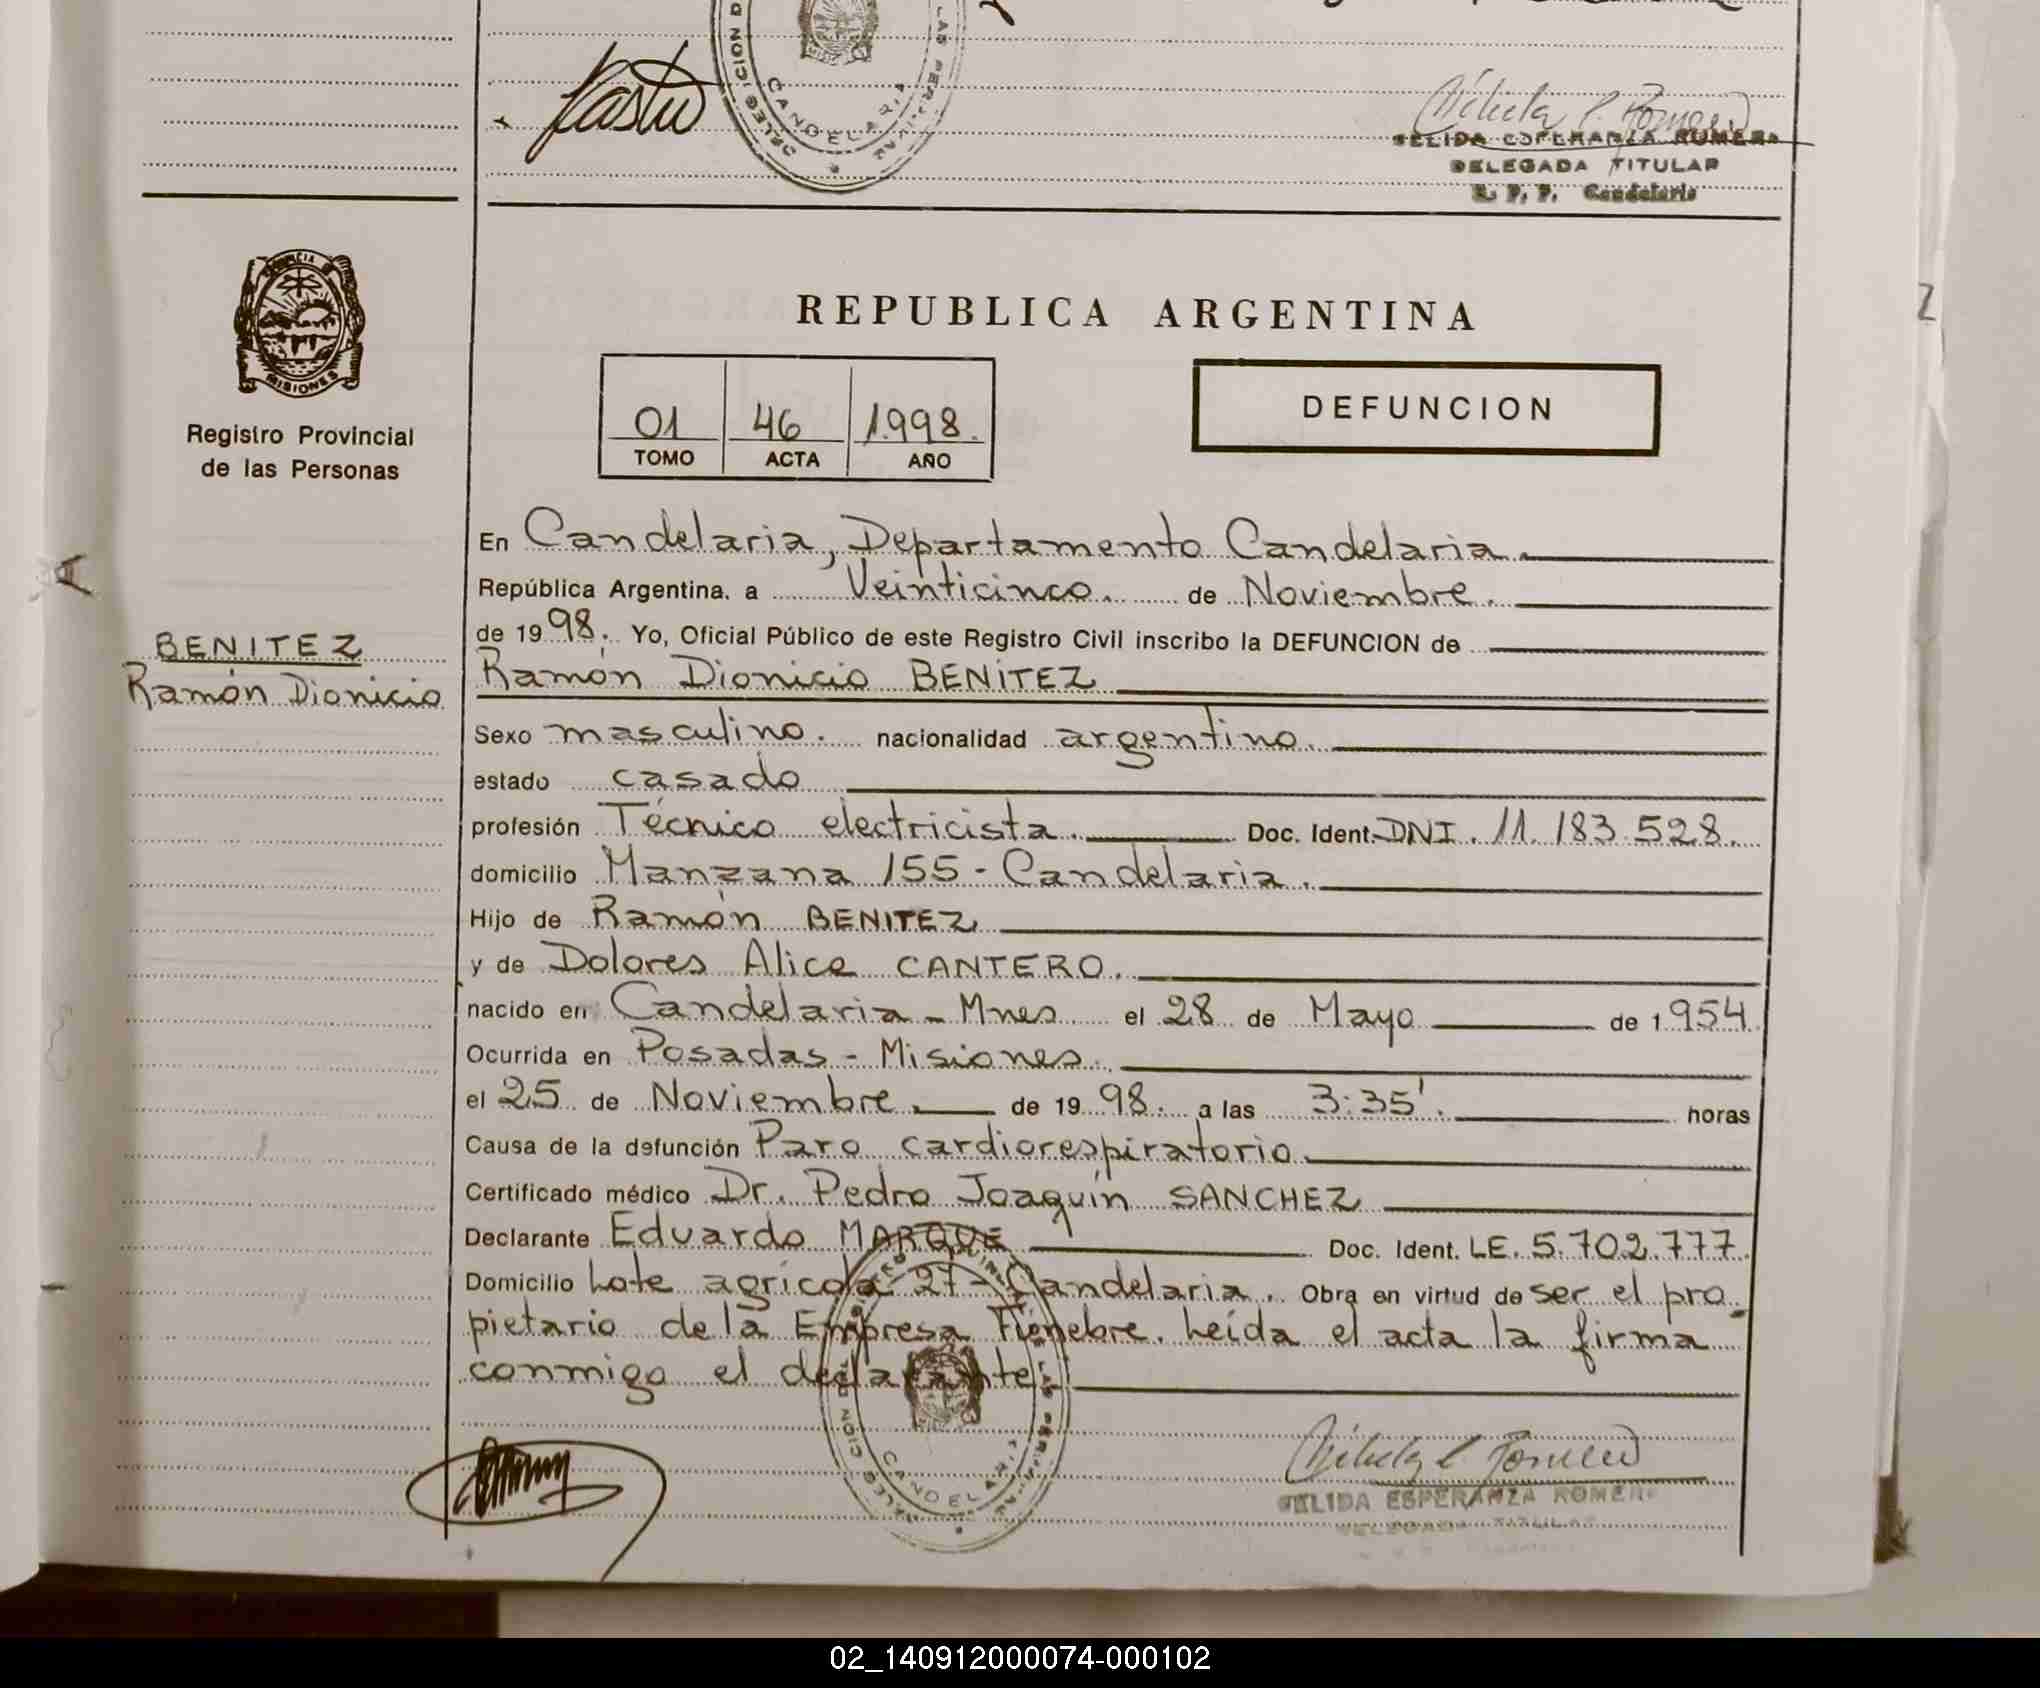 CANDELARIA
DELEGADA TITULAR
R. P. P. Candelaria
PROVINCIA DE
MISIONES
Registro Provincial
de las Personas
REPUBLICA ARGENTINA
01 46 1.998.
TOMO ACTA AÑO
DEFUNCION
En Candelaria, Departamento Candelaria.
República Argentina. a Veinticinco. de Noviembre.
de 1998. Yo, Oficial Público de este Registro Civil inscribo la DEFUNCION de
BENITEZ
Ramón Dionicio
Ramón Dionicio BENITEZ
Sexo masculino. nacionalidad argentino.
estado casado
profesión Técnico electricista. Doc. Ident. DNI. 11.183.528.
domicilio Manzana 155 - Candelaria.
Hijo de Ramón BENITEZ
y de Dolores Alice CANTERO.
nacido en Candelaria - Mnes el 28 de Mayo de 1954
Ocurrida en Posadas - Misiones.
el 25 de Noviembre. de 1998. a las 3:35'. horas
Causa de la defunción Paro cardiorespiratorio.
Certificado médico Dr. Pedro Joaquín SANCHEZ
Declarante Eduardo MARQUE Doc. Ident. LE. 5.702.777.
Domicilio Lote agrícola 27 - Candelaria. Obra en virtud de ser el pro
pietario de la Empresa Fúnebre. Leída el acta la firma
conmigo el declarante.
CANDELARIA
ESPERANZA ROMERO
02_140912000074-000102